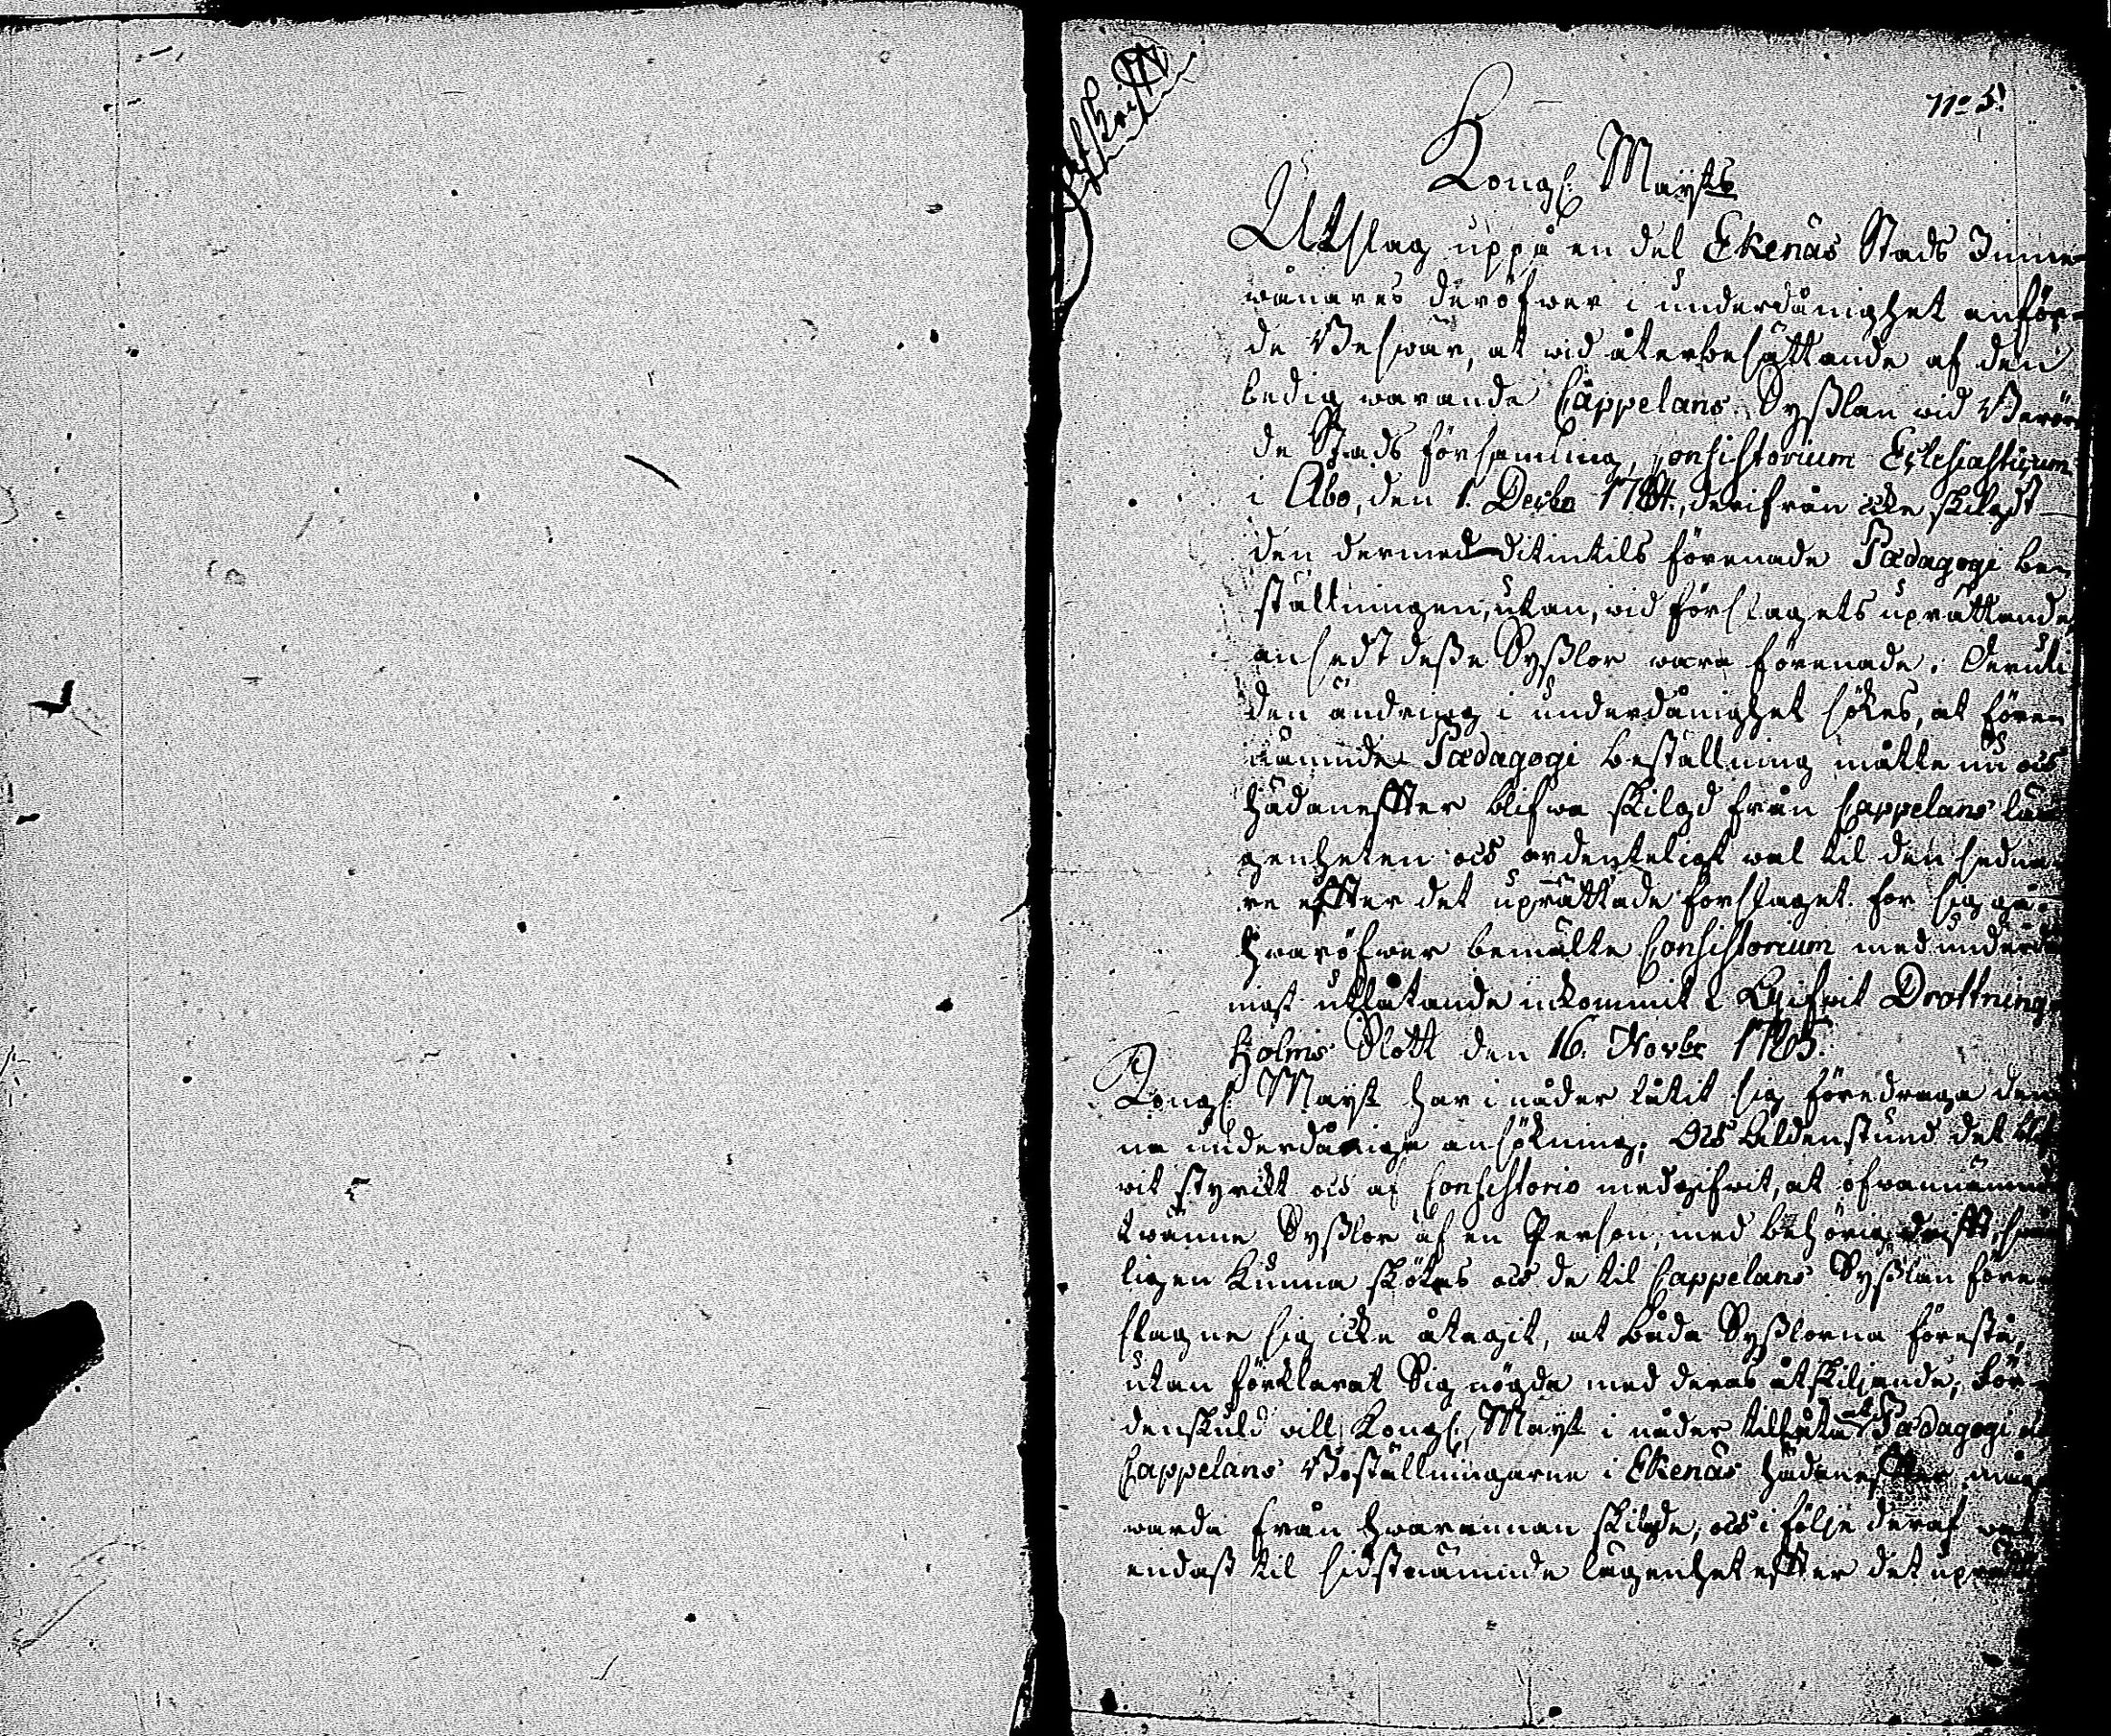 Afskrifft
No 5.
Kongl. Maÿts
Utslag uppå en del Ekenäs Stads Inne-
wånares deröfwer i underdånighet anför-
de Beswär, at wid återbesättande af den
ledig warande Cappelans Sysslan wid Berör-
de Stads församling, Consistorium Eclesiasticum
i Åbo, den 1. Decbr 1784., derifrån icke skilgdt
den dermed ditintils förenade Pædagogi be-
ställningen, utan, wid förslagets uprättande
ansedt desse Sysslor wara förenade; deruti
den ändring i underdånighet sökes, at före-
nämnde Pædagogi beställning måtte nu och
hädaneffter blifwa skilgd från Cappelans lä-
genheten och ordenteligt wal til den sedna-
re effter det uprättade förslaget för sig gå;
hwaröfwer bemälte Consistorium med underdå-
nigt utlåtande inkommit. Gifwit Drottning-
holms Slott den 16. Novbr 1785.
Kongl. Maÿt har i nåder låtit sig föredraga den-
na underdåniga ansökning; Och aldenstund det blif-
wit styrckt och af Consistorio medgifwit, at ofwannämnde
twänne Sysslor af en Person, med behörig drifft,
ligen kunna skötas och de til Cappelans Sysslan före-
slagne sig icke åtagit, at båda Sysslorna förestå,
utan förklarat Sig nögde med deras åtskiljande; För-
denskuld will Kongl. Maÿt i nåder tillåta at Pædagogi och
Cappelans Beställningarne i Ekenäs hädaneffter måge
warda från hwarannan skilgde, och i följe deraf wal
endast til sidstnämnde lägenhet effter det uprätta-